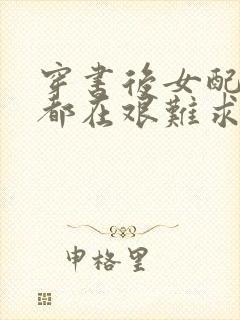 穿書後女配
都在艱難求
申格里